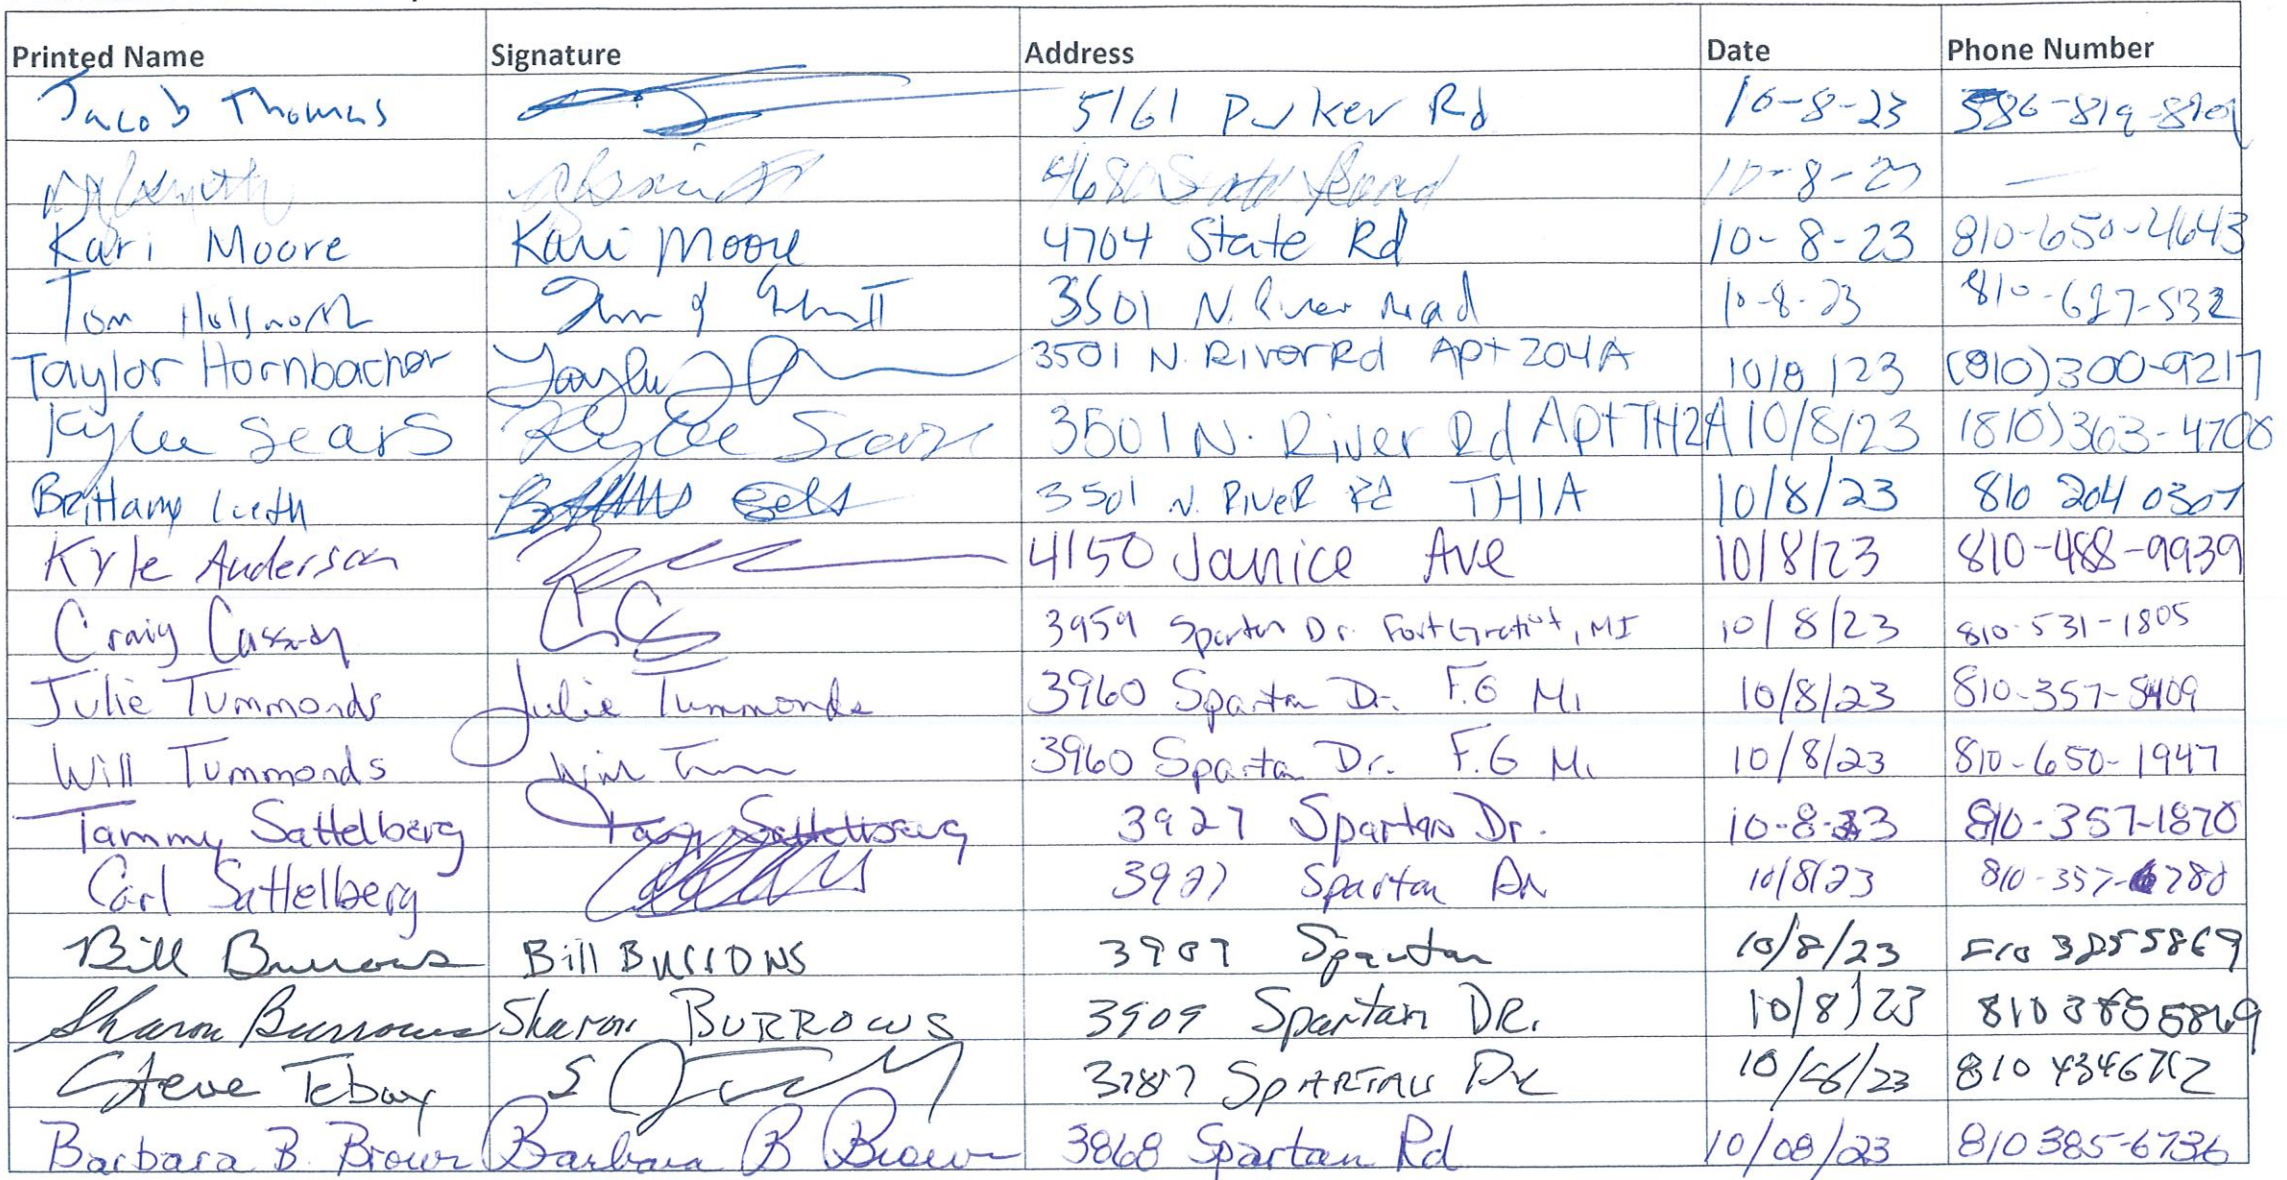 Printed Name Signature Address Date Phone Number
Jacob Thomas 5161 Parker Rd 10-8-23
10-8-23 —
Kari Moore Kari Moore 4704 State Rd 10-8-23 810-650-4643
Tom 3501 N. River Road 10-8-23
Taylor Hornbacher Taylor 3501 N. River Rd Apt 204A 10/8/23 (810)300-9217
Kylee Sears Kylee Sears 3501 N. River Rd Apt TH2A 10/8/23 (810)363-4708
Brittany 3501 N. RiveR Rd TH1A 10/8/23 810 204 0307
Kyle Anderson 4150 Janice Ave 10/8/23 810-488-9939
Craig Cassidy CC 3959 Spartan Dr. Fort Gratiot, MI 10/8/23 810-531-1805
Julie Tummonds Julie Tummonds 3960 Spartan Dr. F.G Mi 10/8/23 810-357-5409
Will Tummonds Will 3960 Spartan Dr. F.G Mi 10/8/23 810-650-1947
Tammy Sattelberg Tammy Sattelberg 3927 Spartan Dr. 10-8-23 810-357-1870
Carl Sattelberg 3927 Spartan Dr 10/8/23
Bill Burrows Bill Burrows 3909 Spartan 10/8/23 810 3855869
Sharon Burrows Sharon BURROWS 3909 Spartan DR. 10/8/23 810 385 5869
Steve Tebay SPARTAN Dr 10/8/23
Barbara B. Brown Barbara B Brown 3868 Spartan Rd 10/08/23 810 385-6736